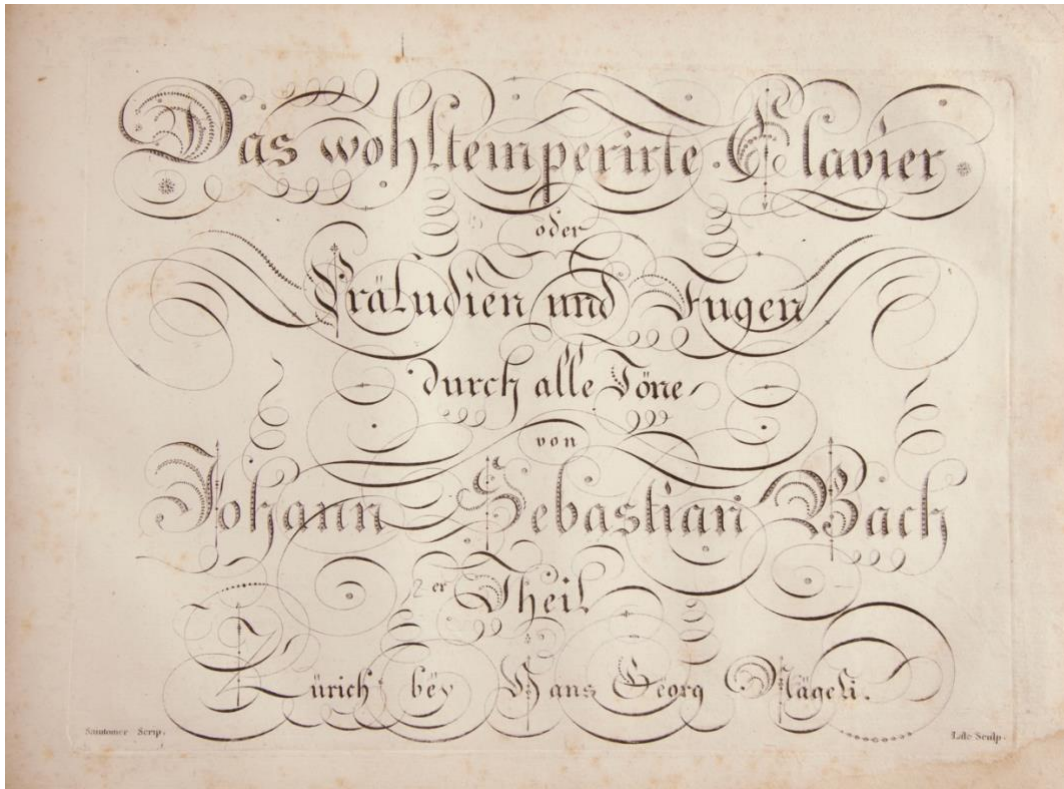 Das wohltemperirte Clavier
oder
Präludien und Fugen
durch alle Töne
von
Johann Sebastian Bach
2er Theil
Zürich bëy Hans Georg Nägeli.
Saintomer Scrip.
Lale Sculp.